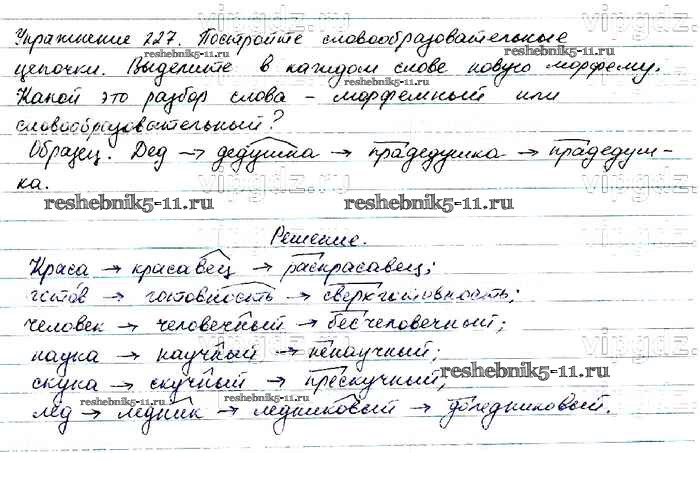 Упражнение 227. Постройте словообразовательные
цепочки. Выделите в каждом слове новую морфему.
Какой это разбор слова – морфемный или
словообразовательный?
Образец. Дед → дедушка → прадедушка → прадедуш-
ка.
reshebnik5-11.ru
reshebnik5-11.ru
Решение.
Краса → красавец → раскрасавец;
готов → готовность → сверхготовность;
человек → человечный → бесчеловечный;
наука → научный → ненаучный;
скука → скучный → прескучный;
лёд → ледник → ледниковый → доледниковый.
reshebnik5-11.ru
reshebnik5-11.ru
reshebnik5-11.ru
reshebnik5-11.ru
reshebnik5-11.ru
vipgdz.ru
vipgdz.ru
vipgdz.ru
vipgdz.ru